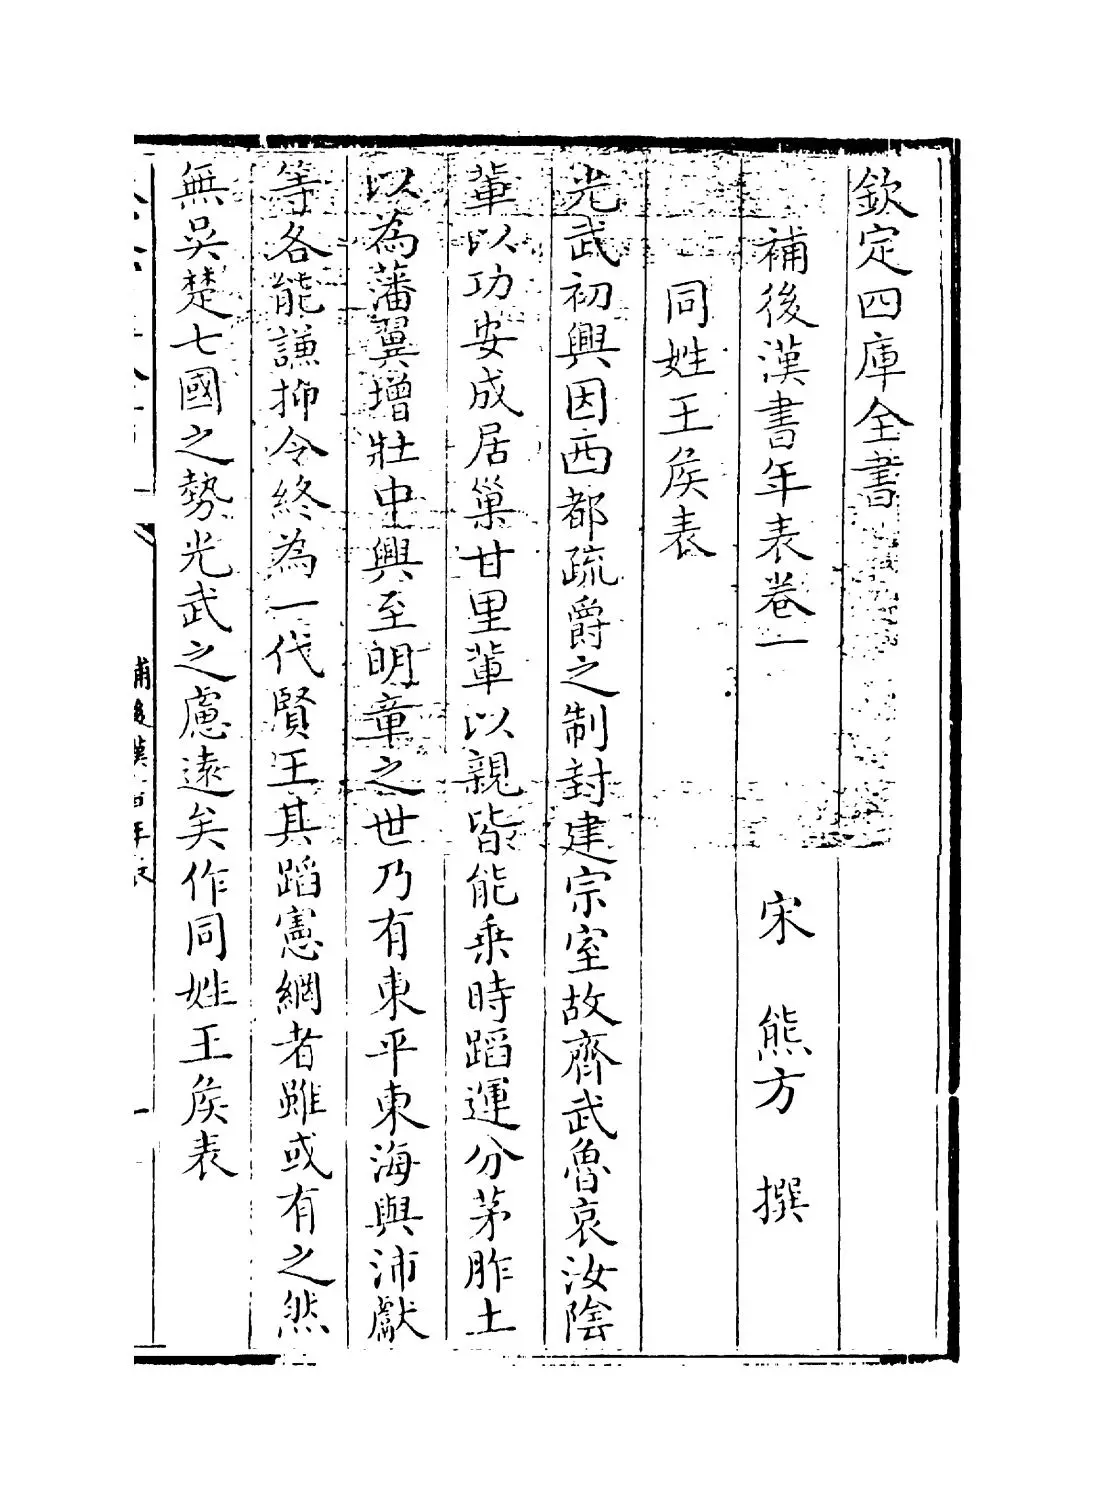 欽定四庫全書
補後漢書年表卷一
宋 熊方 撰
同姓王侯表
光武初興因西都疏爵之制封建宗室故齊武魯哀汝陰
輩以功安成居巢甘里輩以親皆能乗時蹈運分茅胙土
以為藩翼增壯中興至明章之世乃有東平東海與沛獻
等各能謙抑令終為一代賢王其蹈憲網者雖或有之然
無吳楚七國之勢光武之慮遠矣作同姓王侯表